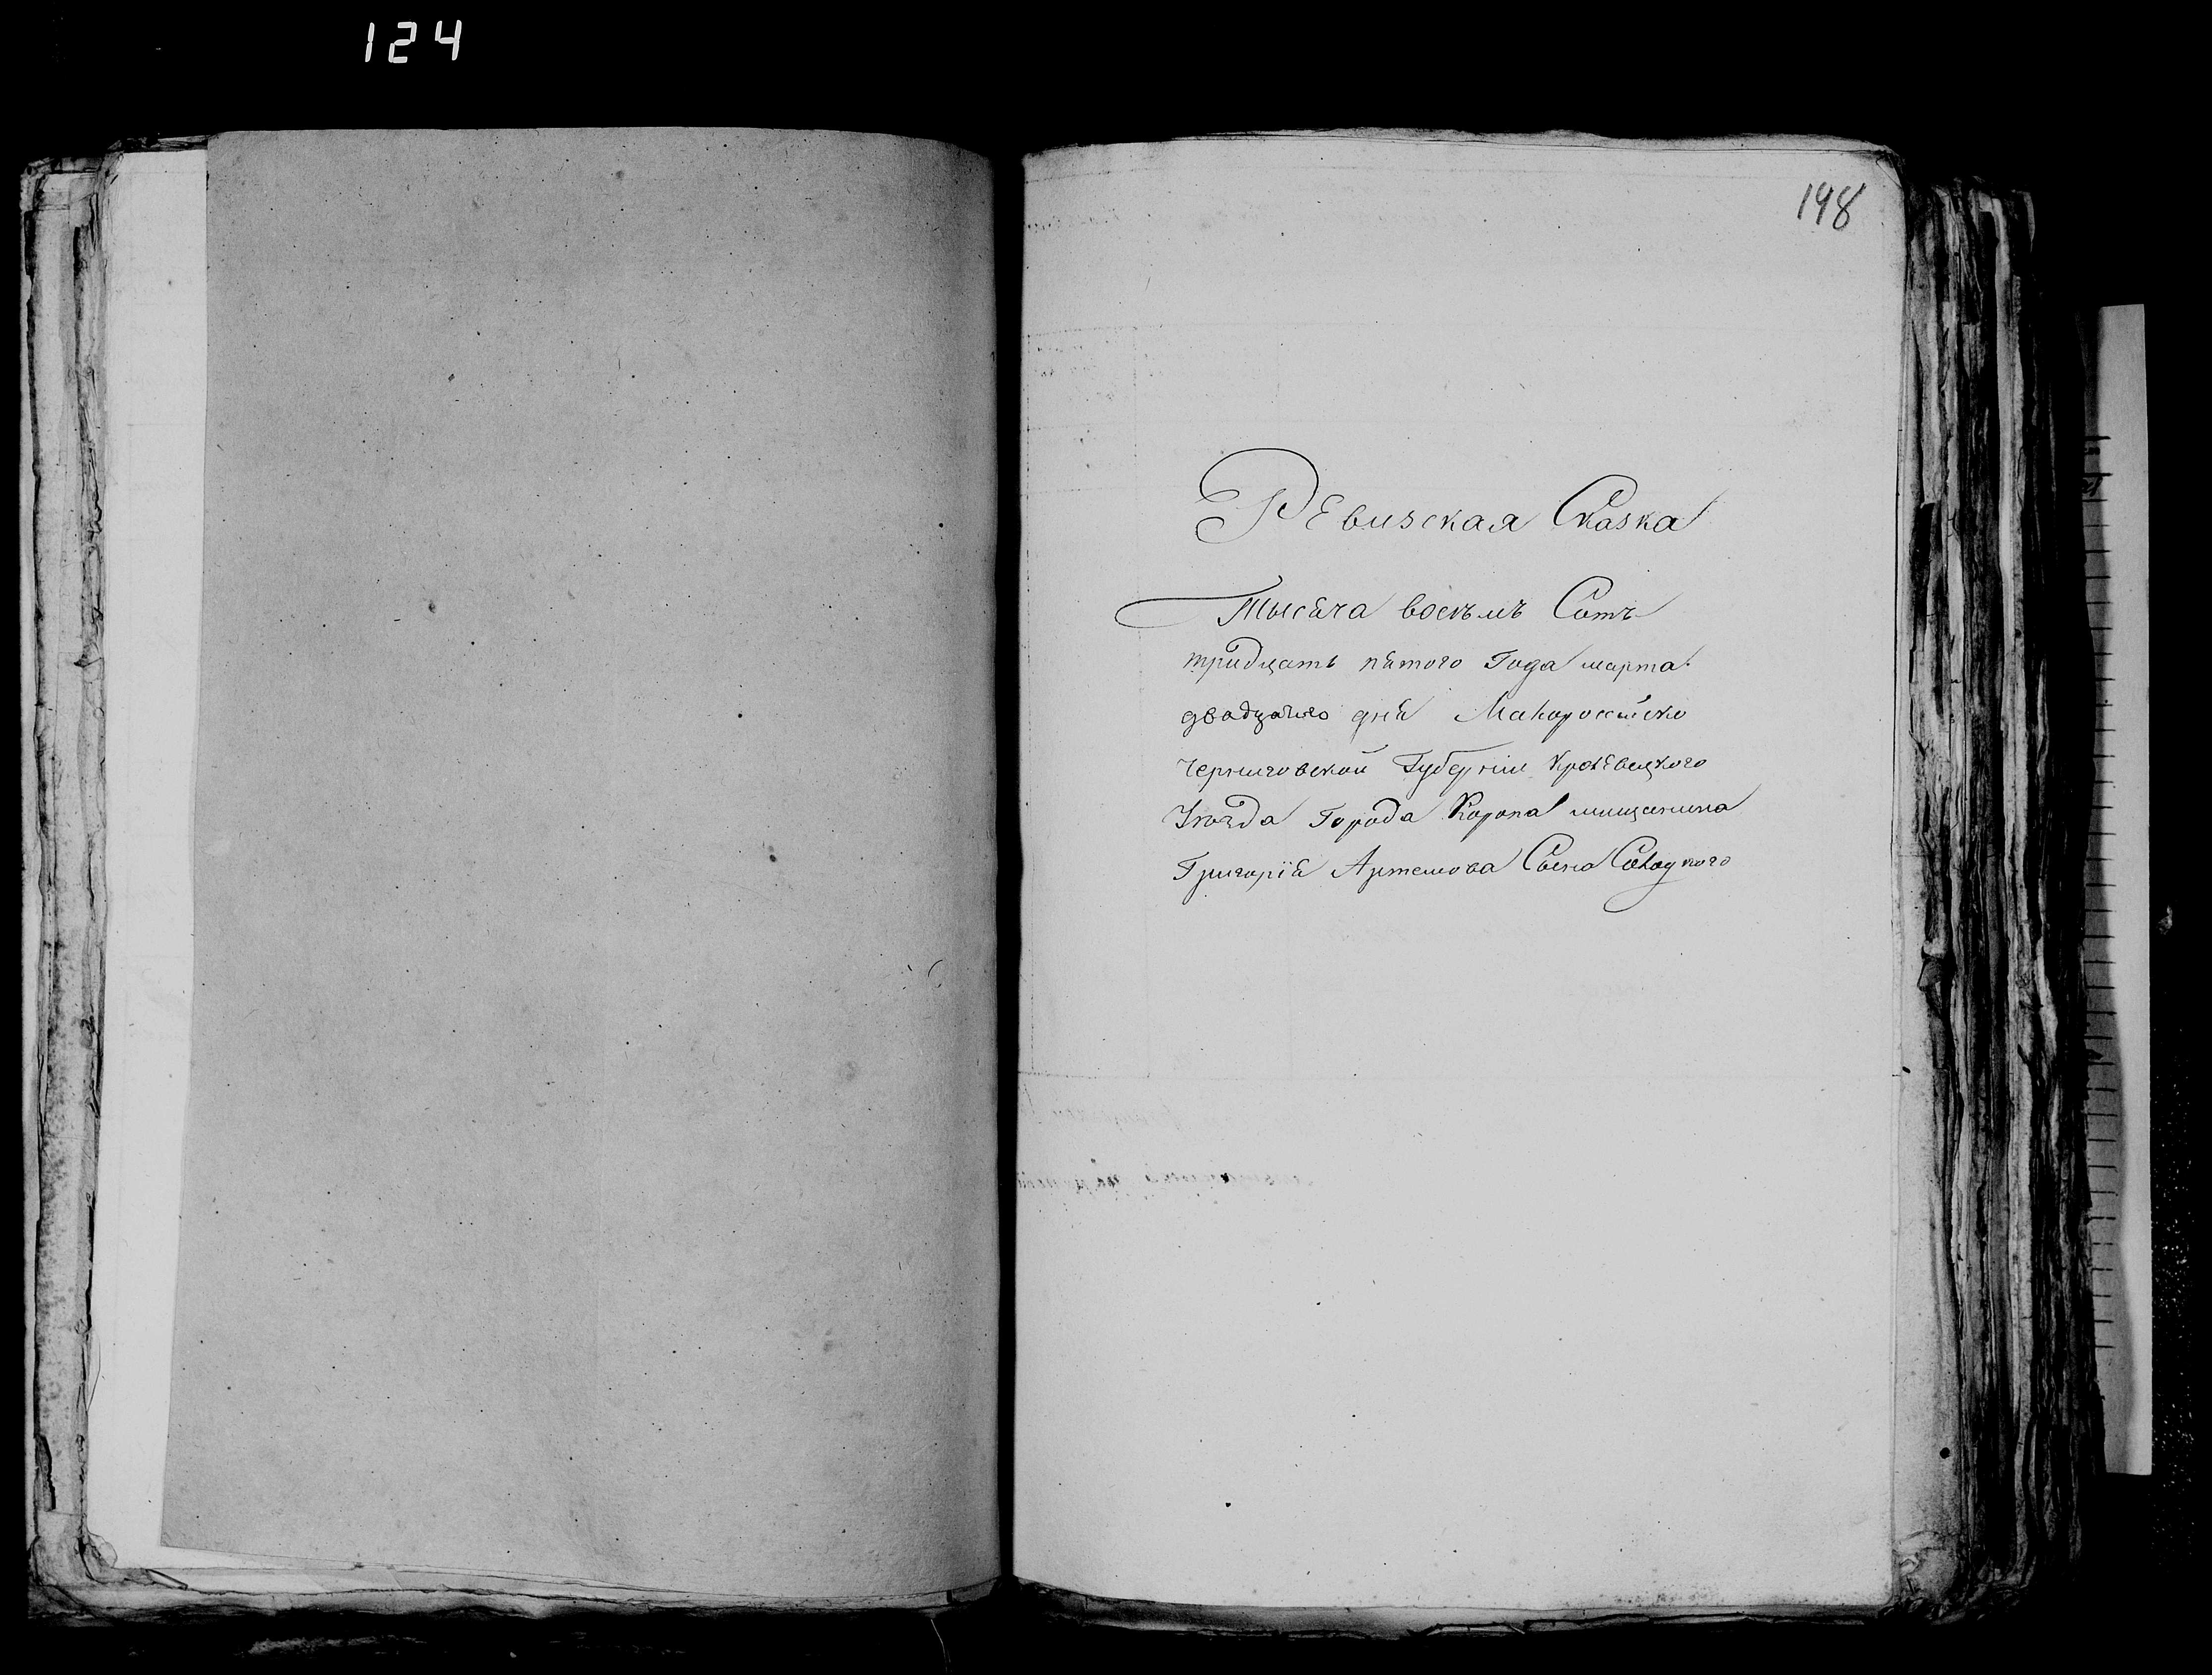 124
198
Ревизская Сказка
Тысяча восемъ Сотъ
тридцать пятого Года марта
двадцатого дня Малоросийско
Черниговской Губернии Кролевецкого
Уезда Города Коропа мищанина
Григорія Артемова Сына